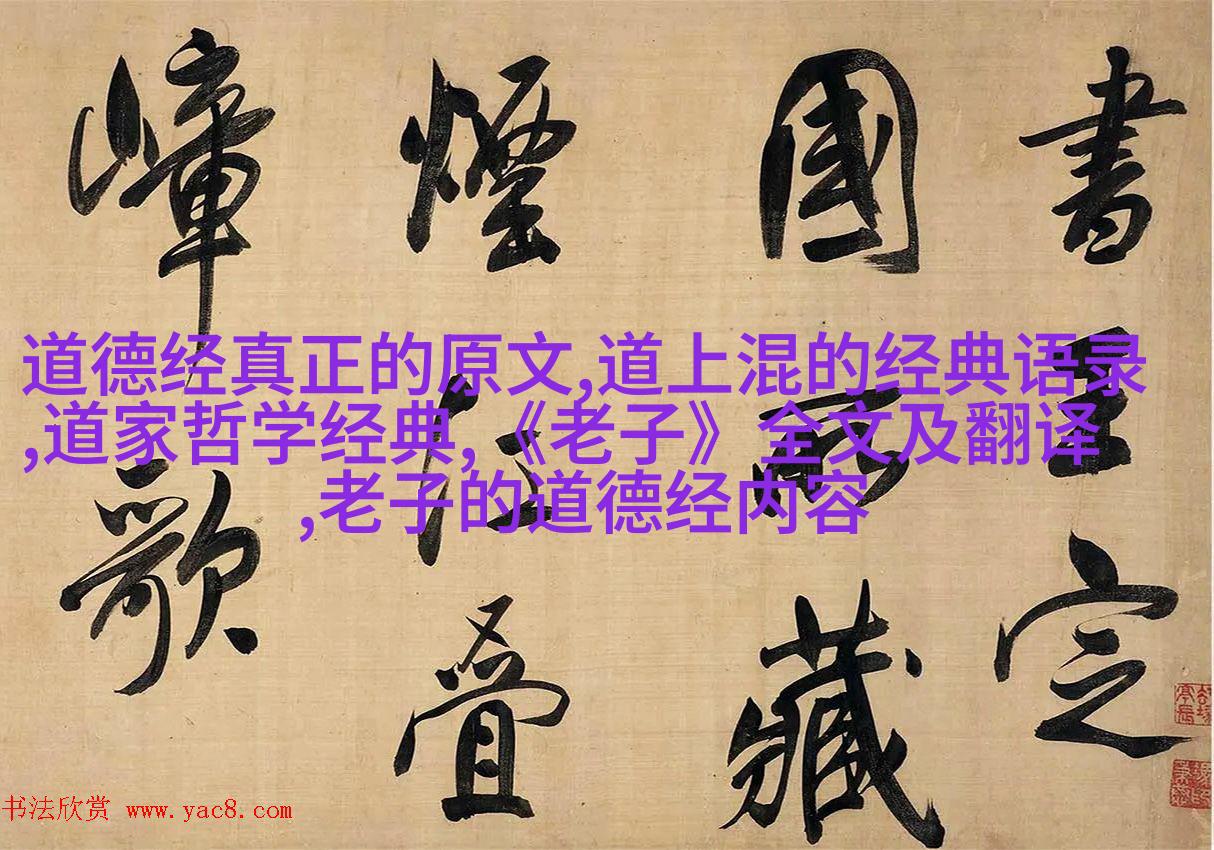 書王定
國所藏
煙江疊
嶂歌
道德经真正的原文,道上混的经典语录
,道家哲学经典,《老子》全文及翻译
,老子的道德经内容
书法欣赏 www.yac8.com